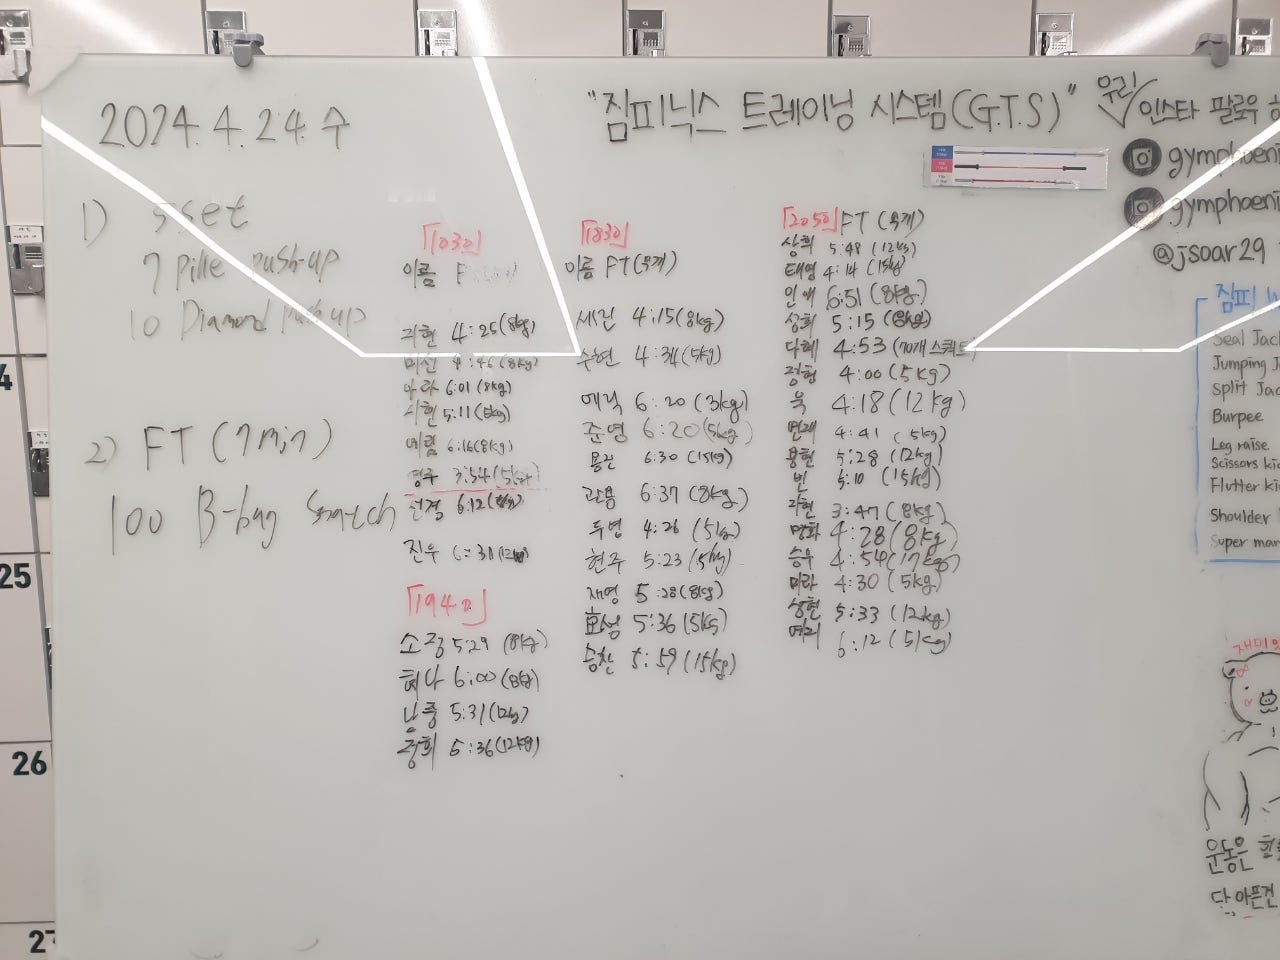 2024.4.24.수
"짐피닉스 트레이닝 시스템(G.T.S)"
우리
인스타 팔로우
gymphoeni
gymphoeni
@jsoar29
1) 5set
7 Pike push-up
10 Diamond push up
2) FT (7min)
100 B-bag Snatch
「1030」
이름 F
지현 4:25(8kg)
미선 4:46(8kg)
아라 6:01(8kg)
시현 5:11(5kg)
예림 6:16(8kg)
경주 3:54(5kg)
선결 6:12
진우 6:31(12kg)
「1940」
소정 5:29 (8kg)
희나 6:00(8kg)
5:31(12kg)
중희 5:36(12kg)
「1830」
이름 FT(무게)
세린 4:15(8kg)
수현 4:34(5kg)
6:20(3kg)
준영 6:20(5kg)
용관 6:30 (15kg)
관용 6:37 (8kg)
두영 4:26 (5kg)
현주 5:23 (5kg)
재영 5:28(8kg)
효성 5:36(5kg)
승찬 5:59(15kg)
「2050」 FT (무게)
상희 5:48 (12kg)
태영 4:14 (15kg)
인애 6:51 (8kg)
상희 5:15 (8kg)
다혜 4:53 (70개 스쿼트)
정형 4:00(5kg)
욱 4:18(12kg)
4:41 (5kg)
용현 5:28 (12kg)
빈 5:10 (15kg)
지현 3:47(8kg)
명화 4:28(8kg)
승우 4:54(17kg)
미라 4:30 (5kg)
상현 5:33 (12kg)
6:12 (5kg)
짐피 W
Seal Jac
Jumping J
Split Jac
Burpee
Leg raise
Scissors kic
Flutter kic
Shoulder
Super man
재미있
운동은
단 아픈건
25
26
27